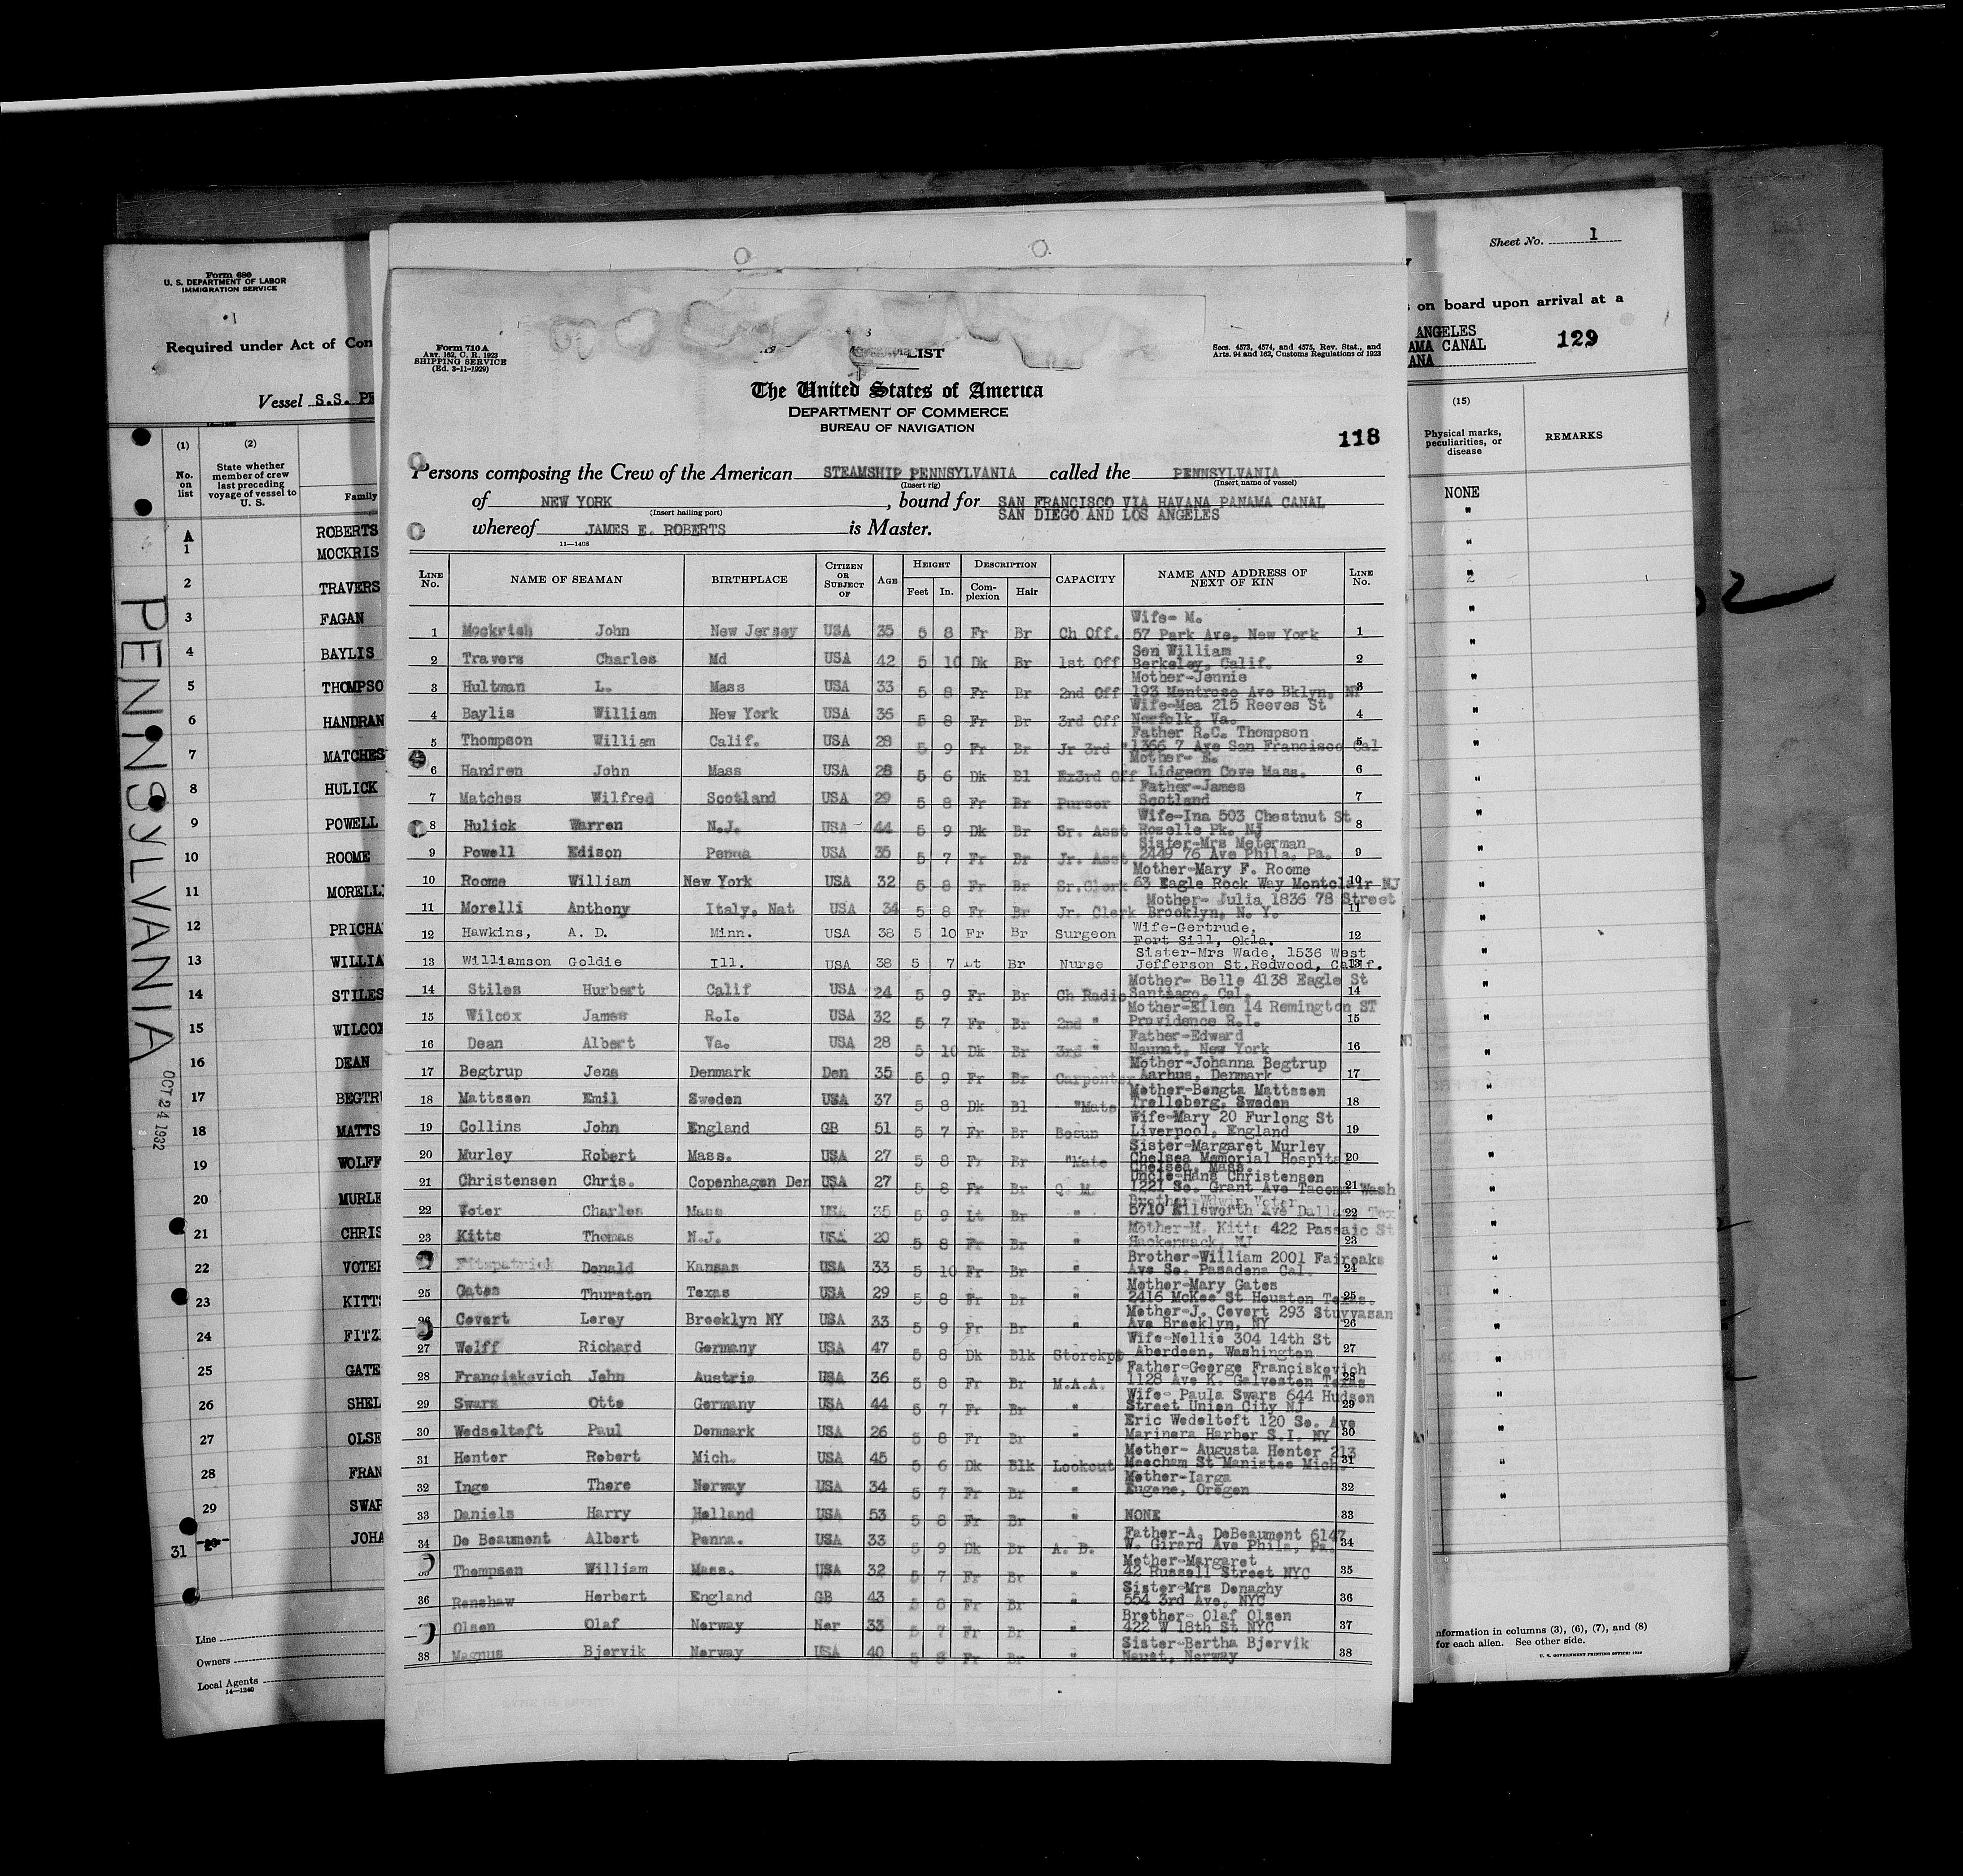 Form 680
U. S. DEPARTMENT OF LABOR
IMMIGRATION SERVICE
Required under Act of Con
Vessel S.S. PE
(1) (2)
No. on list
State whether member of crew last preceding voyage of vessel to U. S.
Family
A ROBERTS
1 MOCKRIS
2 TRAVERS
3 FAGAN
4 BAYLIS
5 THOMPSO
6 HANDRAN
7 MATCHES
8 HULICK
9 POWELL
10 ROOME
11 MORELLI
12 PRICHA
13 WILLIA
14 STILES
15 WILCOX
16 DEAN
17 BEGTRU
18 MATTS
19 WOLFF
20 MURLE
21 CHRIS
22 VOTER
23 KITTS
24 FITZ
25 GATE
26 SHEL
27 OLSE
28 FRAN
29 SWAR
31 JOHA
Line
Owners
Local Agents
14—1240
PENNSYLVANIA
OCT 24 1932
Form 710 A
ART. 162, C. R. 1923
SHIPPING SERVICE
(Ed. 3-11-1929)
LIST
Secs. 4573, 4574, and 4575, Rev. Stat., and
Arts. 94 and 162, Customs Regulations of 1923
The United States of America
DEPARTMENT OF COMMERCE
BUREAU OF NAVIGATION
118
Persons composing the Crew of the American STEAMSHIP PENNSYLVANIA called the PENNSYLVANIA
(Insert rig) (Insert name of vessel)
of NEW YORK, bound for SAN FRANCISCO VIA HAVANA PANAMA CANAL
(Insert hailing port) SAN DIEGO AND LOS ANGELES
whereof JAMES E. ROBERTS is Master.
11—1408
LINE No. NAME OF SEAMAN BIRTHPLACE CITIZEN OR SUBJECT OF AGE HEIGHT Feet In. DESCRIPTION Complexion Hair CAPACITY NAME AND ADDRESS OF NEXT OF KIN LINE No.
1 Mockrish John New Jersey USA 35 5 8 Fr Br Ch Off. Wife- M. 57 Park Ave, New York 1
2 Travers Charles Md USA 42 5 10 Dk Br 1st Off Son William Berkeley, Calif. 2
3 Hultman L. Mass USA 33 5 8 Fr Br 2nd Off Mother-Jennie 193 Montrose Ave Bklyn, NY 3
4 Baylis William New York USA 36 5 8 Fr Br 3rd Off Wife-Mea 215 Reeves St Norfolk, Va. 4
5 Thompson William Calif. USA 28 5 9 Fr Br Jr 3rd " Father R.C. Thompson 1366 7 Ave San Francisco Cal 5
6 Handren John Mass USA 28 5 6 Dk Bl Ex3rd Off Mother- E. Lidgeon Cove Mass. 6
7 Matches Wilfred Scotland USA 29 5 8 Fr Br Purser Father-James Scotland 7
8 Hulick Warren N.J. USA 44 5 9 Dk Br Sr. Asst Wife-Ina 503 Chestnut St Roselle Pk. NJ 8
9 Powell Edison Penna USA 35 5 7 Fr Br Jr. Asst Sister-Mrs Meterman 2449 76 Ave Phila, Pa. 9
10 Roome William New York USA 32 5 8 Fr Br Sr.Clerk Mother-Mary F. Roome 63 Eagle Rock Way Montclair NJ 10
11 Morelli Anthony Italy, Nat USA 34 5 8 Fr Br Jr. Clerk Mother- Julia 1836 78 Street Brooklyn, N. Y. 11
12 Hawkins, A. D. Minn. USA 38 5 10 Fr Br Surgeon Wife-Gertrude, Fort Sill, Okla. 12
13 Williamson Goldie Ill. USA 38 5 7 Lt Br Nurse Sister-Mrs Wade, 1536 West Jefferson St.Redwood, Calif. 13
14 Stiles Hurbert Calif USA 24 5 9 Fr Br Ch Radio Mother- Belle 4138 Eagle St Santiago, Cal. 14
15 Wilcox James R.I. USA 32 5 7 Fr Br 2nd " Mother-Ellen 14 Remington ST Providence R.I. 15
16 Dean Albert Va. USA 28 5 10 Dk Br 3rd " Father-Edward Naunat, New York 16
17 Begtrup Jens Denmark Den 35 5 9 Fr Br Carpenter Mother-Johanna Begtrup Aarhus, Denmark 17
18 Mattssen Emil Sweden USA 37 5 8 Dk Bl "Mate Mother-Bengta Mattssen Trelleberg, Sweden 18
19 Collins John England GB 51 5 7 Fr Br Bosun Wife-Mary 20 Furlong St Liverpool, England 19
20 Murley Robert Mass. USA 27 5 8 Fr Br "Mate Sister-Margaret Murley Chelsea Memorial Hospital Chelsea, Mass. 20
21 Christensen Chris. Copenhagen Den USA 27 5 8 Fr Br Q. M. Uncle-Hans Christensen 1221 So. Grant Ave Tacoma Wash 21
22 Voter Charles Mass USA 35 5 9 Lt Br " Brother-Wdwin Voter 5710 Ellsworth Ave Dallas Tex 22
23 Kitts Thomas N.J. USA 20 5 8 Fr Br " Mother-M. Kitts 422 Passaic St Hackensack, NJ 23
Fitzpatrick Donald Kansas USA 33 5 10 Fr Br " Brother-William 2001 Fairoaks Ave So. Pasadena Cal. 24
25 Gates Thurston Texas USA 29 5 8 Fr Br " Mother-Mary Gates 2416 McKee St Houston Texas. 25
26 Covert Leroy Brooklyn NY USA 33 5 9 Fr Br " Mother-J. Covert 293 Stuyvasan Ave Brooklyn, NY 26
27 Wolff Richard Germany USA 47 5 8 Dk Blk Storekpr Wife-Nellie 304 14th St Aberdeen, Washington 27
28 Franciskevich John Austria USA 36 5 8 Fr Br M.A.A. Father-George Franciskevich 1128 Ave K. Galveston Texas 28
29 Swars Otto Germany USA 44 5 7 Fr Br " Wife- Paula Swars 644 Hudson Street Union City NJ 29
30 Wedseltoft Paul Denmark USA 26 5 8 Fr Br " Eric Wedeltoft 120 So. Ave Mariners Harbor S.I. NY 30
31 Henter Robert Mich. USA 45 5 6 Dk Blk Lookout Mother- Augusta Henter 213 Meecham St Manistee Mich. 31
32 Inge Thore Norway USA 34 5 7 Fr Br " Mother-Iarga Eugene, Oregon 32
33 Daniels Harry Holland USA 53 5 8 Fr Br " NONE 33
34 De Beaumont Albert Penna. USA 33 5 9 Dk Br A. B. Father-A. DeBeaumont 6147 W. Girard Ave Phila, Pa. 34
Thompson William Mass. USA 32 5 7 Fr Br " Mother-Margaret 42 Russell Street NYC 35
36 Renshaw Herbert England GB 43 5 8 Fr Br " Sister-Mrs Denaghy 554 3rd Ave, NYC 36
Olsen Olaf Norway Nor 33 5 7 Fr Br " Brother- Olaf Olsen 422 W 18th St NYC 37
38 Magnus Bjorvik Norway USA 40 5 8 Fr Br " Sister-Bertha Bjorvik Naust, Norway 38
Sheet No. 1
on board upon arrival at a
ANGELES
AMA CANAL
ANA
129
(15)
Physical marks, peculiarities, or disease
REMARKS
NONE
nformation in columns (3), (6), (7), and (8)
for each alien. See other side.
U. S. GOVERNMENT PRINTING OFFICE: 1930